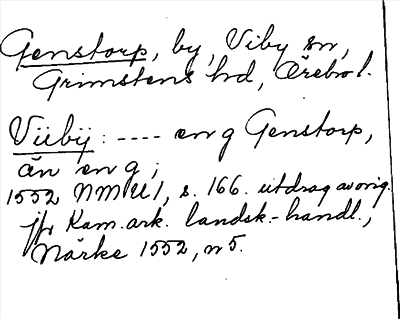 Genstorp, by, Viby sn,
Grimstens hd, Örebro l.
Viibij: ---- en g Genstorp,
än en g;
1552 NMU 1, s. 166. utdrag av orig.
jfr Kam. ark. landsk.-handl.,
Närke 1552, nr 5.